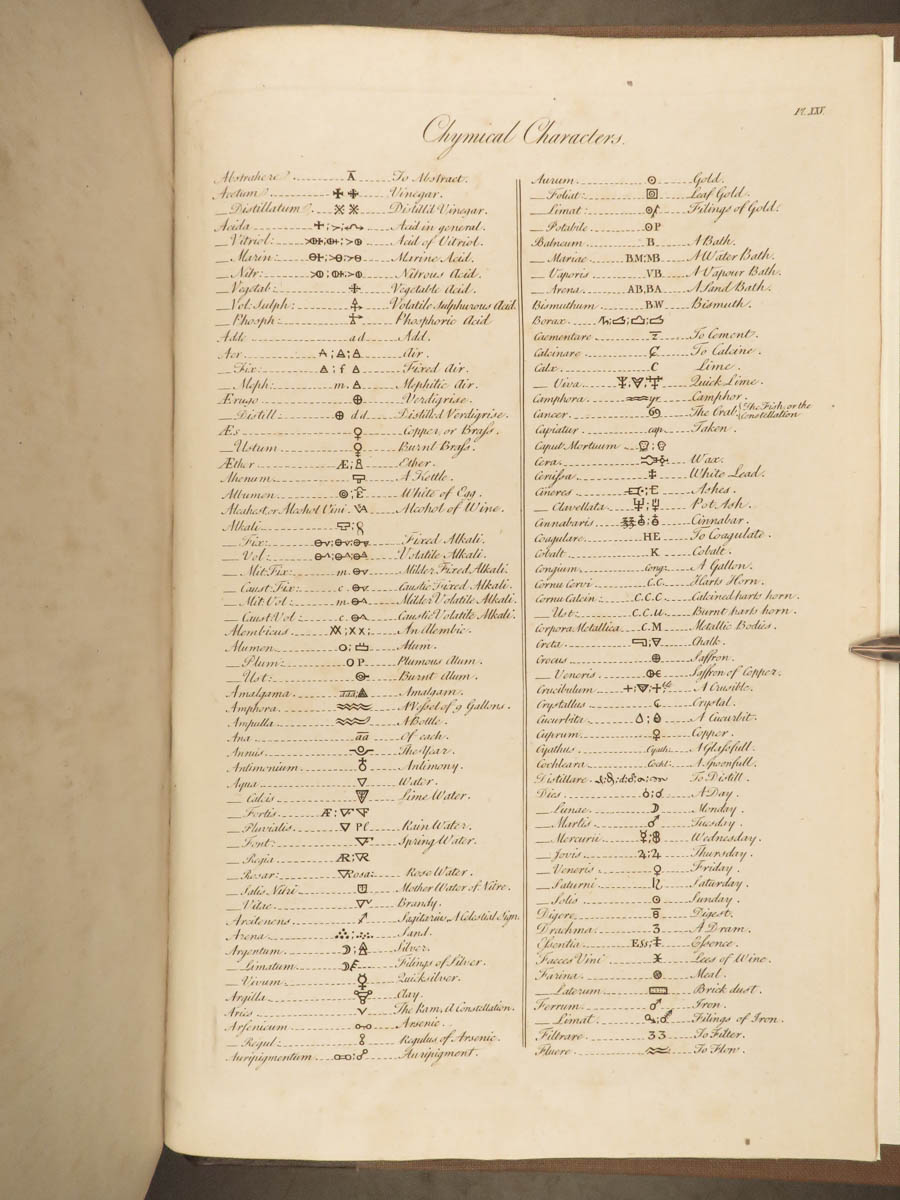 Pl. XXI.
Chymical Characters.
Abstrahere A To Abstract.
Acetum Vinegar.
Distillatum Distill'd Vinegar.
Acida Acid in general.
Vitriol: Acid of Vitriol.
Marin: Marine Acid.
Nitr: Nitrous Acid.
Vegetab: Vegetable Acid.
Vol: Sulph: Volatile Sulphurous Acid
Phosph: Phosphoric Acid
Adde ad Add.
Aer Air.
Fix: f Fixed Air.
Meph: m. Mephitic Air.
Ærugo Verdigrise.
Distill: d d Distill'd Verdigrise.
Æs Copper, or Brass.
Ustum Burnt Brass.
Æther Æ; Ether.
Ahenum A Kettle.
Albumen White of Egg.
Alcahest or Alcohol Vini Alcohol of Wine.
Alkali
Fix: Fixed Alkali.
Vol: Volatile Alkali.
Mit: Fix: m. Milder Fixed Alkali.
Caust: Fix: c Caustic Fixed Alkali.
Mit: Vol: m. Milder Volatile Alkali.
Caust: Vol: c. Caustic Volatile Alkali.
Alembicus XX; XX; An Alembic.
Alumen Alum.
Plum: O P Plumous Alum.
Ust: Burnt Alum.
Amalgama Amalgam.
Amphora A Vessel of 9 Gallons.
Ampulla A Bottle.
Ana aa Of each.
Annus The Year.
Antimonium Antimony.
Aqua Water.
Calcis Lime Water.
Fortis Æ;
Pluvialis Pl Rain Water.
Font: Spring Water.
Regia ÆR; R
Rosar: Rosa: Rose Water.
Salis Nitri Mother Water of Nitre.
Vitae Brandy.
Arcitenens Sagitarius, A Celestial Sign.
Arena Sand.
Argentum Silver.
Limatum Filings of Silver.
Vivum Quicksilver.
Argilla Clay.
Aries The Ram, A Constellation.
Arsenicum Arsenic.
Regul: Regulus of Arsenic.
Auripigmentum Auripigment.
Aurum Gold.
Foliat: Leaf Gold.
Limat: Filings of Gold.
Potabile P
Balneum B A Bath.
Mariae B.M; MB A Water Bath.
Vaporis VB A Vapour Bath.
Arena AB, BA A Sand Bath.
Bismuthum B.W Bismuth.
Borax
Caementare z To Cement.
Calcinare To Calcine.
Calx C Lime.
Viva Quick Lime.
Camphora yr. Camphor.
Cancer 69 The Crab, The Fish, or the Constellation
Capiatur cap Taken.
Caput Mortuum
Cera Wax.
Cerussa White Lead.
Cineres E Ashes.
Clavellata Pot Ash.
Cinnabaris Cinnabar.
Coagulare HE To Coagulate.
Cobalt K Cobalt.
Congium Cong: A Gallon.
Cornu Cervi C.C. Harts Horn.
Cornu Calcin: C.C.C Calcined harts horn.
Ust: C.C.U Burnt harts horn.
Corpora Metallica C.M Metallic Bodies.
Creta Chalk.
Crocus Saffron.
Veneris Saffron of Copper.
Crucibulum &c A Crusible.
Crystallus Crystal.
Cucurbita A Cucurbit.
Cuprum Copper.
Cyathus Cyath: A Glassfull.
Cochleara Cochl: A Spoonfull.
Distillare To Distill.
Dies A Day.
Lunae Monday.
Martis Tuesday.
Mercurii Wednesday.
Jovis Thursday.
Veneris Friday.
Saturni Saturday.
Solis Sunday.
Digere Digest.
Drachma 3 A Dram.
Essentia Ess; Essence.
Faeces Vini Lees of Wine.
Farina Meal.
Laterum Brick dust.
Ferrum Iron.
Limat Filings of Iron.
Filtrare 33 To Filter.
Fluere To Flow.